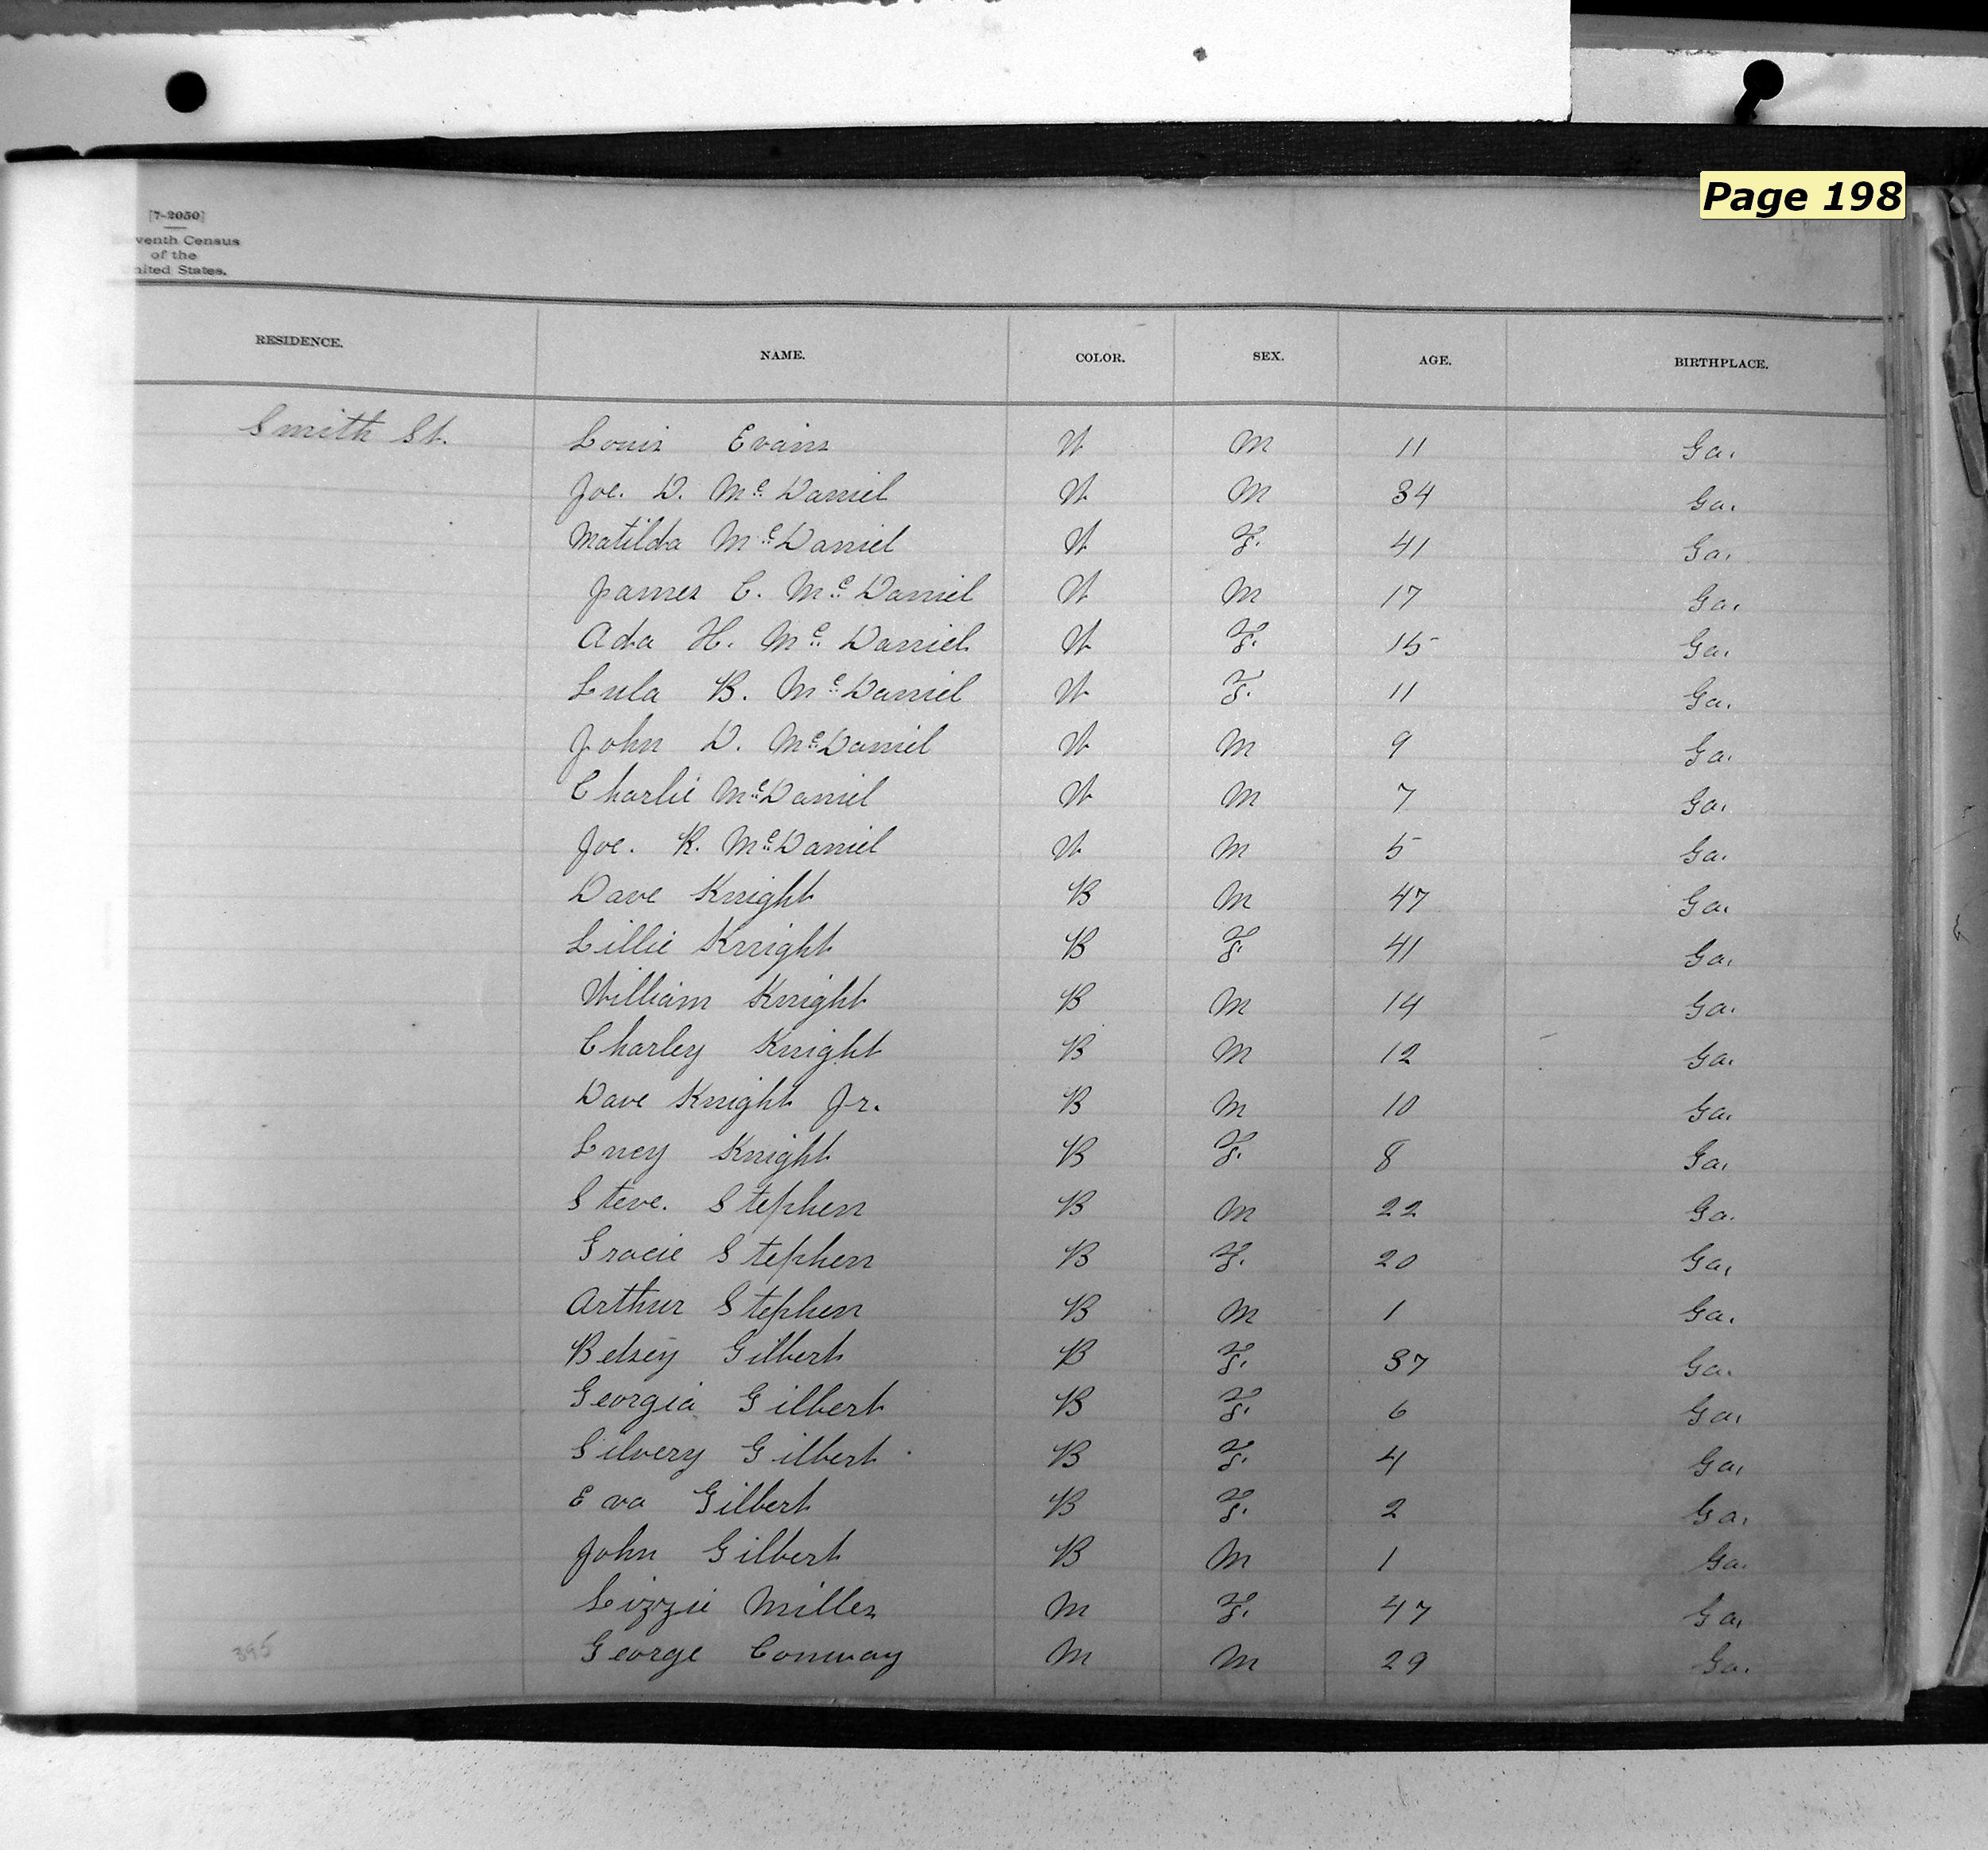 Page 198
[7-2050]
venth Census
of the
nited States.
RESIDENCE. NAME. COLOR. SEX. AGE. BIRTHPLACE.
Smith St. Louis Evans W M 11 Ga.
Joe. D. Mc Daniel W M 34 Ga.
Matilda Mc Daniel W F. 41 Ga.
James C. Mc Daniel W M 17 Ga.
Ada H. Mc Daniel W F. 15 Ga.
Lula B. Mc Daniel W F. 11 Ga.
John D. McDaniel W M 9 Ga.
Charlie McDaniel W M 7 Ga.
Joe. R. McDaniel W M 5 Ga.
Dave Knight B M 47 Ga.
Lillie Knight B F. 41 Ga.
William Knight B M 14 Ga.
Charley Knight B M 12 Ga.
Dave Knight Jr. B M 10 Ga.
Lucy Knight B F. 8 Ga.
Steve. Stephen B M 22 Ga.
Gracie Stephen B F. 20 Ga.
Arthur Stephen B M 1 Ga.
Betsey Gilbert B F. 37 Ga.
Georgia Gilbert B F. 6 Ga.
Silvery Gilbert B F. 4 Ga.
Eva Gilbert B F. 2 Ga.
John Gilbert B M 1 Ga.
Lizzie Miller M F. 47 Ga.
George Conway M M 29 Ga.
395